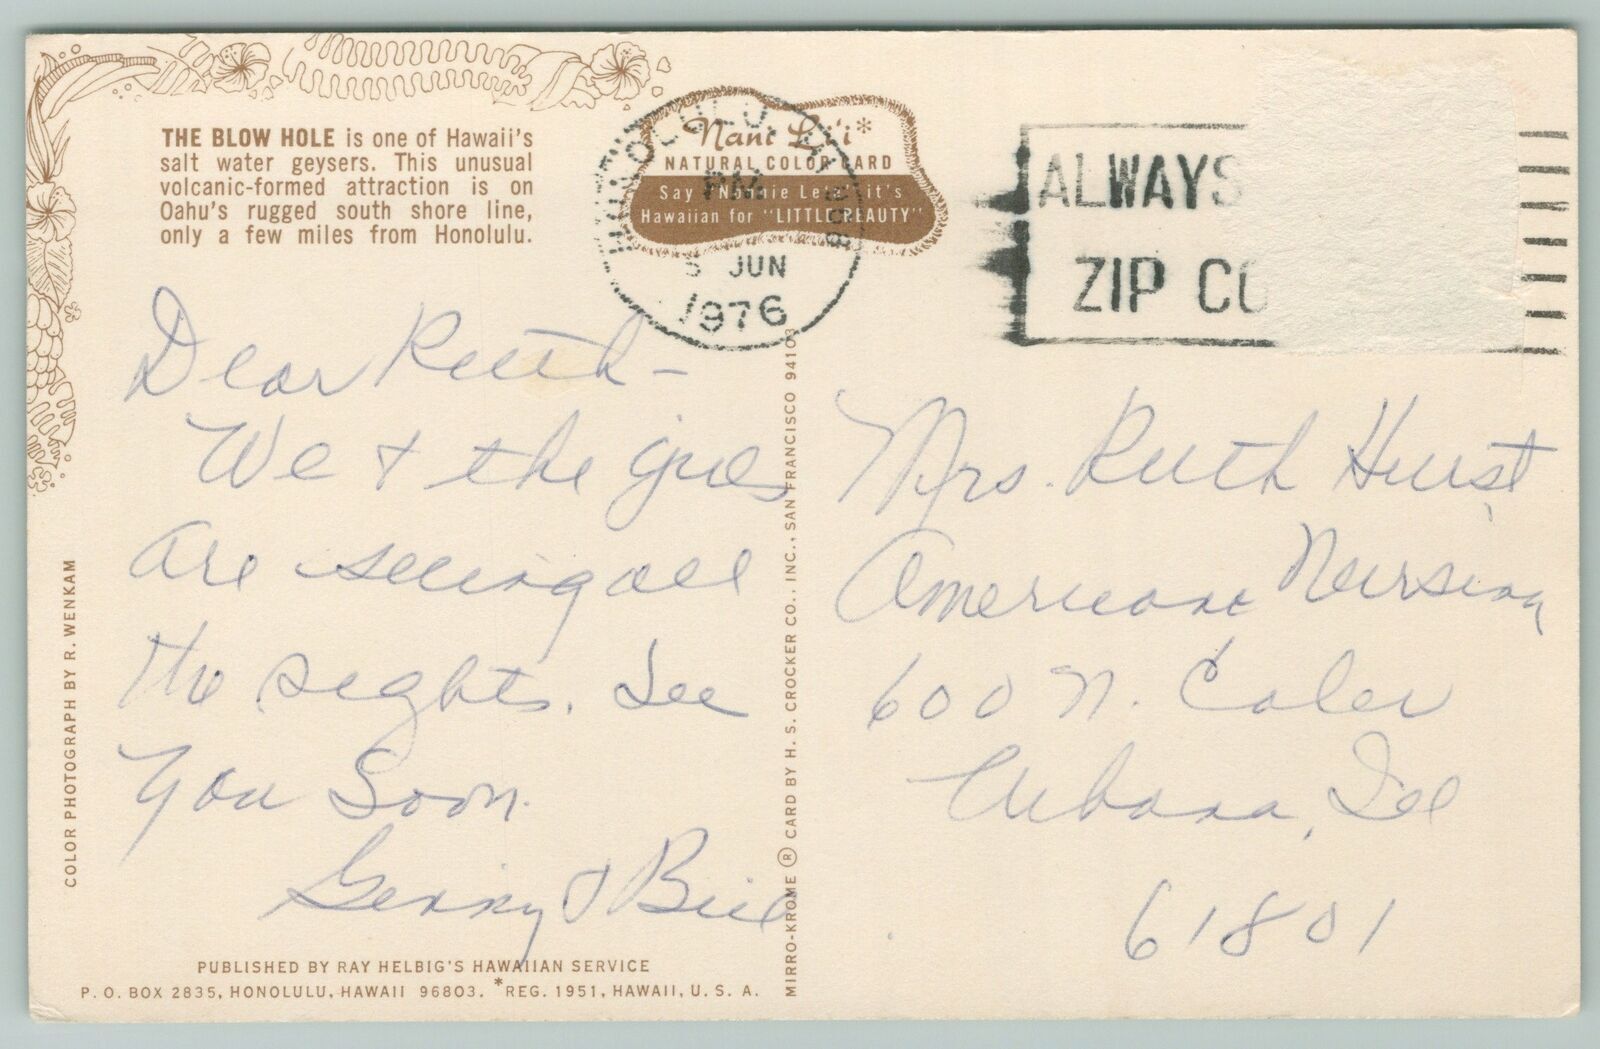 THE BLOW HOLE is one of Hawaii's
salt water geysers. This unusual
volcanic-formed attraction is on
Oahu's rugged south shore line,
only a few miles from Honolulu.
Nani Li'i*
NATURAL COLOR CARD
Say "Nonnie Leta" it's
Hawaiian for "LITTLE BEAUTY"
HONOLULU
PM
5 JUN
1976
ALWAYS
ZIP CO
Dear Ruth -
We & the girls
are seeing all
the sights. See
You Soon.
Genny & Bill
Mrs. Ruth Hurst
Americana Nursing
600 N. Coler
Urbana, Ill
61801
COLOR PHOTOGRAPH BY R. WENKAM
MIRRO-KROME ® CARD BY H. S. CROCKER CO., INC., SAN FRANCISCO 94103
PUBLISHED BY RAY HELBIG'S HAWAIIAN SERVICE
P. O. BOX 2835, HONOLULU, HAWAII 96803. *REG. 1951, HAWAII, U. S. A.